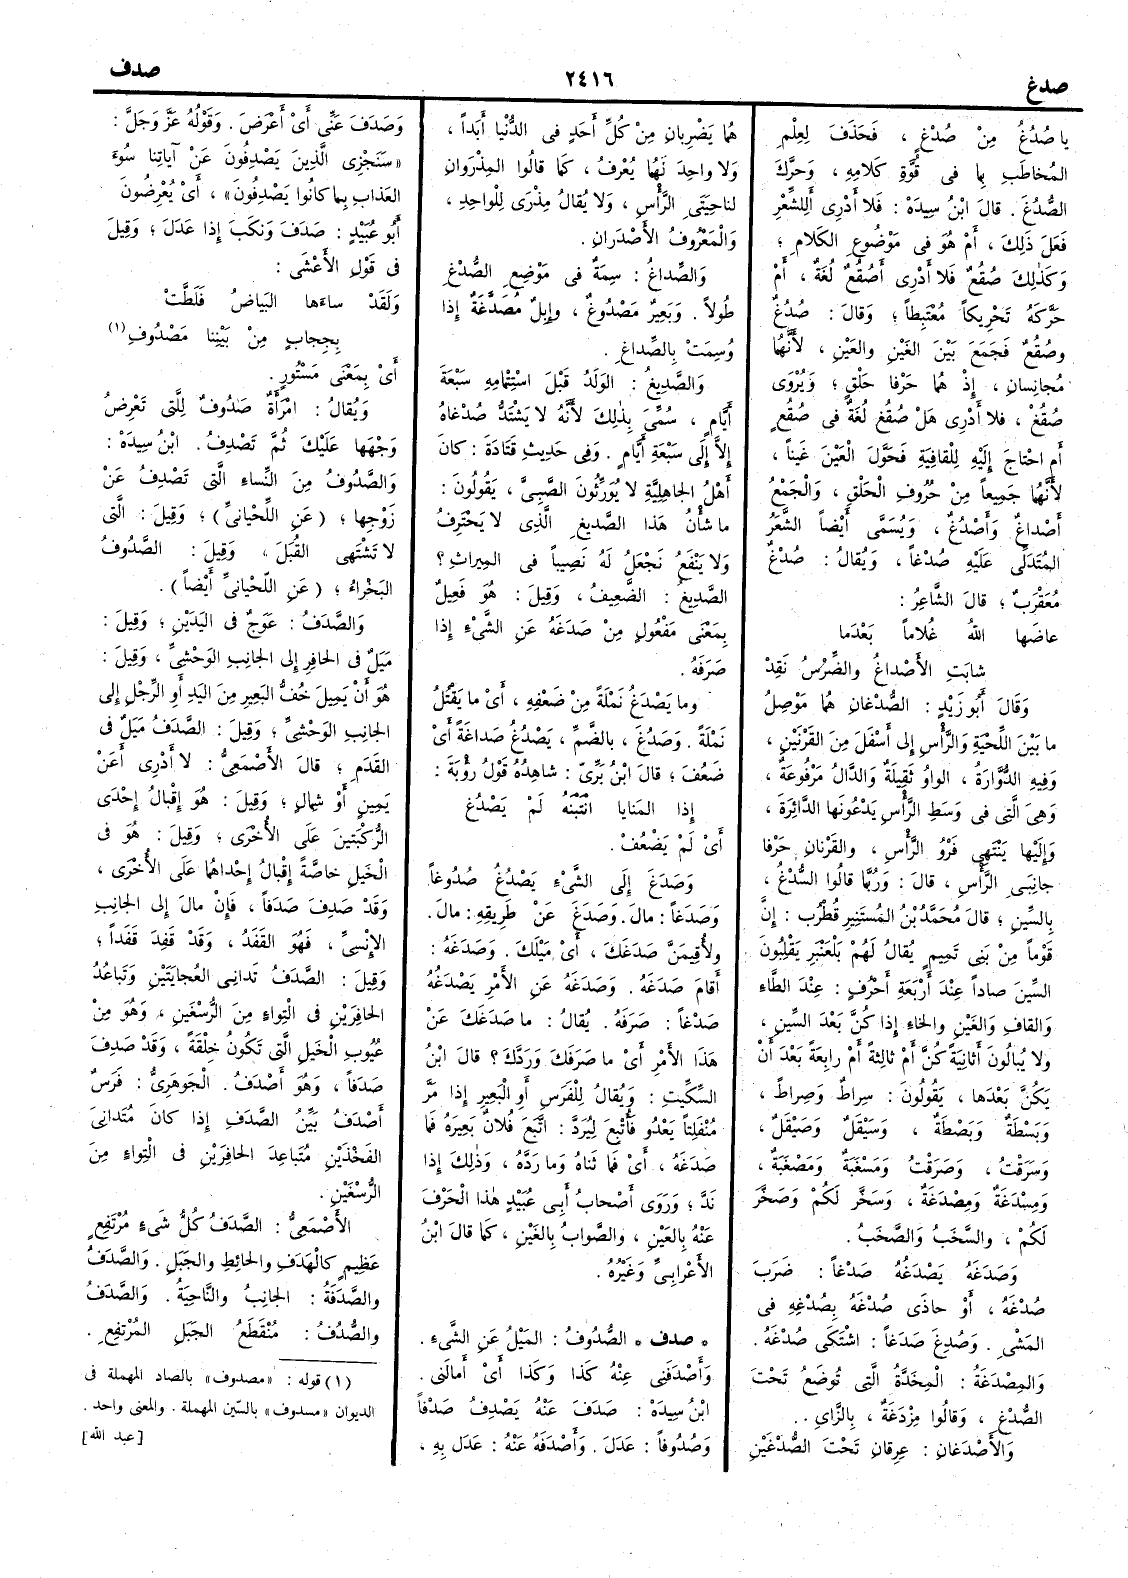 صدغ
٢٤١٦
صدف
يا صُدُغُ مِنْ صُدْغٍ ، فَحَذَفَ لِعِلْمِ
المُخاطَبِ بِما فى قُوَّةِ كَلامِهِ ، وَحَرَّكَ
الصُّدُغَ . قالَ ابْنُ سِيدَهْ : فَلا أَدْرِى أَلِلشِّعْرِ
فَعَلَ ذلِكَ ، أَمْ هُوَ فى مَوْضُوعِ الكَلامِ ؛
وَكَذٰلِكَ صُقُعٌ فَلا أَدْرِى أَصُقُعٌ لُغَةٌ ، أَمْ
حَرَّكَهُ تَحْرِيكاً مُعْتَبِطاً ؛ وَقالَ : صُدُغٌ
وصُقُعٌ فَجَمَعَ بَيْنَ الغَيْنِ والعَيْنِ ، لأَنَّهُما
مُجانِسانِ ، إِذْ هُما حَرْفا حَلْقٍ ؛ وَيُرْوَى
صُقُغْ ، فلا أَدْرِى هَلْ صُقُغ لُغَةٌ فى صُقُعٍ
أَم احْتاجَ إِلَيْهِ لِلْقافِيَةِ فَحَوَّلَ العَيْنَ غَيناً ،
لأَنَّهُما جَمِيعاً مِنْ حُرُوفِ الحَلْقِ ، والْجَمْعُ
أَصْداغٌ وَأَصْدُغٌ ، وَيُسَمَّى أَيْضاً الشَّعَرُ
المُتَدَلِّى عَلَيْهِ صُدْغاً ، وَيُقالُ : صُدْغٌ
مُعَقْرَبٌ ؛ قالَ الشَّاعِرُ :
عاضَها اللهُ غُلاماً بَعْدَما
شابَتِ الأَصْداغُ والضِّرْسُ نَقِدْ
وَقالَ أَبُو زَيْدٍ : الصُّدْغانِ هُما مَوْصِلُ
ما بَيْنَ اللِّحْيَةِ وَالرَّأْسِ إِلى أَسْفَلَ مِنَ القَرْنَيْنِ ،
وَفِيهِ الدُّوَّارَةُ ، الواوُ ثَقِيلَةٌ والدَّالُ مَرْفُوعَةٌ ،
وَهِىَ الَّتى فى وَسَطِ الرَّأْسِ يَدْعُونَها الدَّائِرَةَ ،
وَإِلَيْها يَنْتَهِى فَرْوُ الرَّأْسِ ، والقَرْنانِ حَرْفا
جانِبَىِ الرَّأْسِ ، قالَ : وَرُبَّما قالُوا السُّدْغُ ،
بِالسِّينِ ؛ قالَ مُحَمَّدُ بْنُ المُسْتَنِيرِ قُطْرُب : إِنَّ
قَوْماً مِنْ بَنِى تَمِيمٍ يُقالُ لَهُمْ بَلْعَنْبَرِ يَقْلِبُونَ
السِّينَ صاداً عِنْدَ أَرْبَعَةِ أَحْرُفٍ : عِنْدَ الطَّاءِ
وَالقافِ وَالغَيْنِ والخاءِ إِذا كُنَّ بَعْدَ السِّينِ ،
ولا يُبالُونَ أَثانِيَةً كُنَّ أَمْ ثالِثَةً أَمْ رابِعَةً بَعْدَ أَنْ
يَكُنَّ بَعْدَها ، يَقُولُونَ : سِراطٌ وَصِراطٌ ،
وَبَسْطَةٌ وَبَصْطَةٌ ، وَسَيْقَلٌ وَصَيْقَلٌ ،
وَسَرَقْتُ ، وَصَرَقْتُ وَمَسْغَبَةٌ وَمَصْغَبَةٌ ،
وَمِسْدَغَةٌ وَمِصْدَغَةٌ ، وَسَخَّر لَكُمْ وَصَخَّرَ
لَكُمْ ، والسَّخَبُ وَالصَّخَبُ .
وَصَدَغَهُ يَصْدَغُهُ صَدْغاً : ضَرَبَ
صُدْغَهُ ، أَوْ حاذَى صُدْغَهُ بِصُدْغِهِ فى
المَشْىِ . وَصُدِغَ صَدَغاً : اشْتَكَى صُدْغَهُ .
وَالمِصْدَغَةُ : الْمِخَدَّةُ الَّتِى تُوضَعُ تَحْتَ
الصُّدْغِ ، وَقالُوا مِزْدَغَةٌ ، بِالزَّاىِ .
وَالأَصْدَغانِ : عِرْقانِ تَحْتَ الصُّدْغَيْنِ
هُما يَضْرِبانِ مِنْ كُلِّ أَحَدٍ فى الدُّنْيا أَبَداً ،
وَلا واحِدَ لَهُما يُعْرَفُ ، كَما قالُوا المِذْرَوانِ
لناحِيَتَىِ الرَّأْسِ ، وَلا يُقالُ مِذْرَى لِلْواحِدِ ،
وَالْمَعْرُوفُ الأَصْدَرانِ .
وَالصِّداغُ : سِمَةٌ فى مَوْضِعِ الصُّدْغِ
طُولاً . وَبَعِيرٌ مَصْدُوغٌ ، وإِبِلٌ مُصَدَّغَةٌ إِذا
وُسِمَتْ بِالصِّداغِ .
وَالصَّدِيغُ : الوَلَدُ قَبْلَ اسْتِتْمامِهِ سَبْعَةَ
أَيَّامٍ ، سُمِّىَ بِذٰلِكَ لأَنَّهُ لا يَشْتَدُّ صُدْغاهُ
إِلاَّ إِلَى سَبْعَةِ أَيَّامٍ . وَفى حَدِيثِ قَتَادَةَ : كانَ
أَهْلُ الجاهِلِيَّةِ لا يُوَرِّثُونَ الصَّبِىَّ ، يَقُولُونَ :
ما شَأْنُ هَذا الصَّدِيغِ الَّذِى لا يَحْتَرِفُ
وَلا يَنْفَعُ نَجْعَلُ لَهُ نَصِيباً فى المِيراثِ ؟
الصَّدِيغُ : الضَّعِيفُ ، وَقِيلَ : هُوَ فَعِيلٌ
بِمَعْنَى مَفْعُولٍ مِنْ صَدَغَهُ عَنِ الشَّىْءِ إِذا
صَرَفَهُ .
وما يَصْدَغُ نَمْلَةً مِنْ ضَعْفِهِ ، أَىْ ما يَقْتُلُ
نَمْلَةً . وَصَدُغَ ، بالضَّمِّ ، يَصْدُغُ صَداغَةً أَىْ
ضَعُفَ ؛ قالَ ابْنُ بَرِّىّ : شاهِدُهُ قَوْلُ رُؤْبَةَ :
إِذا المَنايا انْتَبْنَهُ لَمْ يَصْدُغِ
أَىْ لَمْ يَضْعُفْ .
وَصَدَغَ إِلَى الشَّىْءِ يَصْدُغُ صُدُوغاً
وَصَدَغاً : مالَ . وَصَدَغَ عَنْ طَرِيقِهِ : مالَ .
ولأُقِيمَنَّ صَدَغَكَ ، أَىْ مَيْلَكَ . وَصَدَغَهُ :
أَقامَ صَدَغَهُ . وَصَدَغَهُ عَنِ الأَمْرِ يَصْدَغُهُ
صَدْغاً : صَرَفَهُ . يُقالُ : ما صَدَغَكَ عَنْ
هَذا الأَمْرِ أَىْ ما صَرَفَكَ وَرَدَّكَ ؟ قالَ ابْنُ
السِّكِّيتِ : وَيُقالُ لِلْفَرَسِ أَوِ الْبَعِيرِ إِذا مَرَّ
مُنْفَلِتاً يَعْدُو فَأُتْبِعَ لِيُرَدَّ : اتَّبَعَ فُلانٌ بَعِيرَهُ فَما
صَدَغَهُ ، أَىْ فَما ثَناهُ وَما رَدَّهُ ، وَذٰلِكَ إِذا
نَدَّ ؛ وَرَوَى أَصْحابُ أَبِى عُبَيْدٍ هٰذا الْحَرْفَ
عَنْهُ بِالعَيْنِ ، والصَّوابُ بِالغَيْنِ ، كَما قالَ ابْنُ
الأَعْرابِىِّ وَغَيْرُهُ .
• صدف • الصُّدُوفُ : المَيْلُ عَنِ الشَّىْءِ .
وَأَصْدَفَنِى عِنْهُ كَذا وَكَذا أَىْ أَمالَنِى .
ابْنُ سِيدَهْ : صَدَفَ عَنْهُ يَصْدِفُ صَدْفاً
وَصُدُوفاً : عَدَلَ . وَأَصْدَفَهُ عَنْهُ : عَدَلَ بِهِ ،
وَصَدَفَ عَنِّى أَىْ أَعْرَضَ . وَقَوْلُهُ عَزَّ وَجَلَّ :
« سَنَجْزِى الَّذِينَ يَصْدِفُونَ عَنْ آياتِنا سُوءَ
العَذابِ بِما كانُوا يَصْدِفُونَ » ، أَىْ يُعْرِضُونَ
أَبُو عُبَيْدٍ : صَدَفَ وَنَكَبَ إِذا عَدَلَ ؛ وَقِيلَ
فى قَوْلِ الأَعْشَى :
وَلَقَدْ ساءَها البَياضُ فَلَطَّتْ
بِحِجابٍ مِنْ بَيْنِنا مَصْدُوفِ (١)
أَىْ بِمَعْنَى مَسْتُورٍ .
وَيُقالُ : امْرَأَةٌ صَدُوفٌ لِلَّتِى تَعْرِضُ
وَجْهَها عَلَيْكَ ثُمَّ تَصْدِفُ . ابْنُ سِيدَهْ :
وَالصَّدُوفُ مِنَ النِّساءِ الَّتى تَصْدِفُ عَنْ
زَوْجِها ؛ ( عَنِ اللِّحْيانىِّ ) ؛ وَقِيلَ : الَّتى
لا تَشْتَهِى القُبَلَ ، وَقِيلَ : الصَّدُوفُ
البَخْراءُ ؛ ( عَنِ اللِّحْيانىِّ أَيْضاً ) .
وَالصَّدَفُ : عَوَجٌ فى اليَدَيْنِ ؛ وَقِيلَ :
مَيَلٌ فى الحافِرِ إِلى الجانِبِ الوَحْشِىِّ ، وَقِيلَ :
هُوَ أَنْ يَمِيلَ خُفُّ البَعِيرِ مِنَ اليَدِ أَوِ الرِّجْلِ إِلى
الجانِبِ الوَحْشِىِّ ؛ وَقِيلَ : الصَّدَفُ مَيَلٌ فى
القَدَمِ ؛ قالَ الأَصْمَعِىُّ : لا أَدْرِى أَعَنْ
يَمِينٍ أَوْ شِمالٍ ؛ وَقِيلَ : هُوَ إِقْبالُ إِحْدَى
الرُّكْبَتَيْنِ عَلَى الأُخْرَى ؛ وَقِيلَ : هُوَ فى
الخَيْلِ خاصَّةً إِقْبالُ إِحْداهُما عَلَى الأُخْرَى ،
وَقَدْ صَدِفَ صَدَفاً ، فَإِنْ مالَ إِلى الجانِبِ
الإِنْسِىِّ ، فَهُوَ القَفَدُ ، وَقَدْ قَفِدَ قَفَداً ؛
وَقِيلَ : الصَّدَفُ تَدانِى العُجايَتَيْنِ وَتَباعُدُ
الحافِرَيْنِ فى الْتِواءٍ مِنَ الرُّسْغَيْنِ ، وَهُوَ مِنْ
عُيُوبِ الخَيْلِ الَّتى تَكُونُ خِلْقَةً ، وَقَدْ صَدِفَ
صَدَفاً ، وَهُوَ أَصْدَفُ . الْجَوْهَرِىُّ : فَرَسٌ
أَصْدَفُ بَيِّنُ الصَّدَفِ إِذا كانَ مُتَدانِىَ
الفَخْذَيْنِ مُتَباعِدَ الحافِرَيْنِ فى الْتِواءٍ مِنَ
الرُّسْغَيْنِ .
الأَصْمَعِىُّ : الصَّدَفُ كُلُّ شَىْءٍ مُرْتَفِعٍ
عَظِيمٍ كالْهَدَفِ والحائِطِ والجَبَلِ . وَالصَّدَفُ
والصَّدَفَةُ : الجانِبُ والنَّاحِيَةُ . وَالصَّدَفُ
والصُّدُفُ : مُنْقَطَعُ الجَبَلِ المُرْتَفِعِ .
(١) قوله : « مصدوف » بالصاد المهملة فى
الديوان « مسدوف » بالسّين المهملة . والمعنى واحد .
[عبد الله]